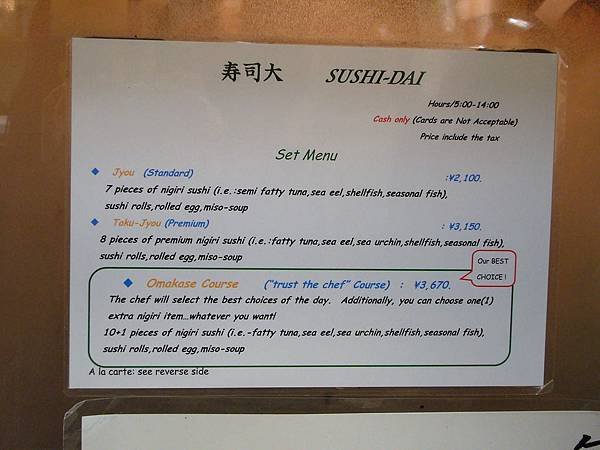 寿司大 SUSHI-DAI
Hours/5:00-14:00
Cash only (Cards are Not Acceptable)
Price include the tax
Set Menu
◆ Jyou (Standard) :¥2,100.
7 pieces of nigiri sushi (i.e.:semi fatty tuna,sea eel,shellfish,seasonal fish),
sushi rolls,rolled egg,miso-soup
◆ Toku-Jyou (Premium) : ¥3,150.
8 pieces of premium nigiri sushi (i.e.:fatty tuna,sea eel,sea urchin,shellfish,seasonal fish),
sushi rolls,rolled egg,miso-soup
Our BEST
CHOICE!
◆ Omakase Course ("trust the chef" Course) : ¥3,670.
The chef will select the best choices of the day. Additionally, you can choose one(1)
extra nigiri item…whatever you want!
10+1 pieces of nigiri sushi (i.e.-fatty tuna,sea eel,sea urchin,shellfish,seasonal fish),
sushi rolls,rolled egg,miso-soup
A la carte: see reverse side